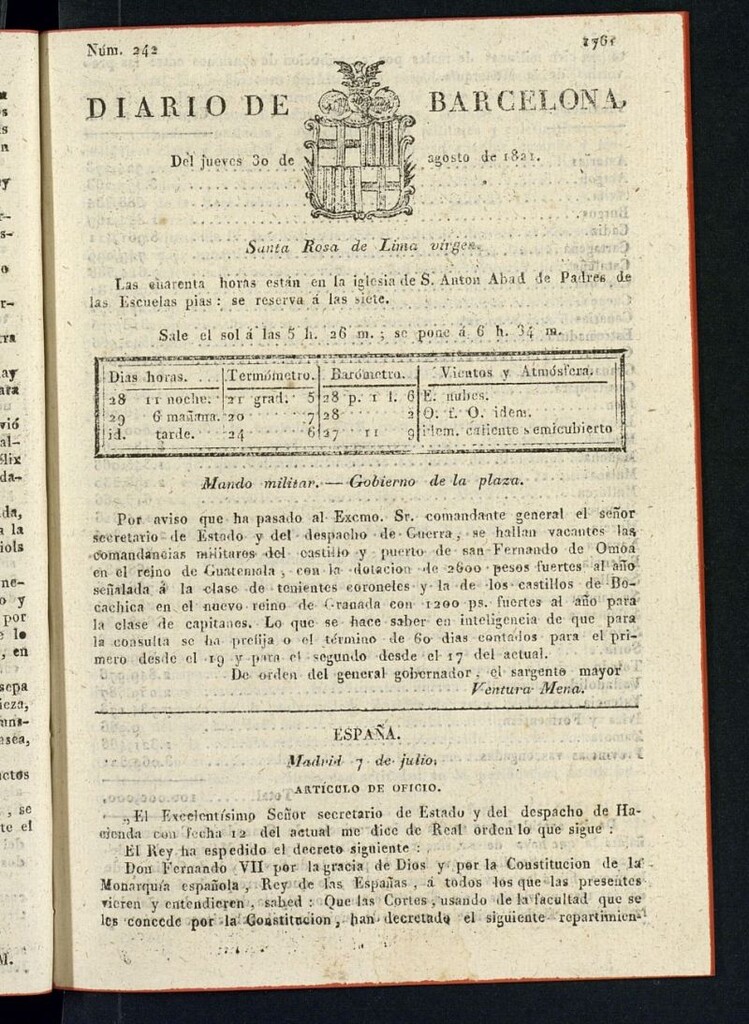 Núm. 242
1761
DIARIO DE BARCELONA,
Del jueves 30 de agosto de 1821.
Santa Rosa de Lima vírgen.
Las cuarenta horas están en la iglesia de S. Anton Abad de Padres de
las Escuelas pias: se reserva á las siete.
Sale el sol á las 5 h. 26 m.; se pone á 6 h. 34 m.
Dias horas. Termómetro. Barómetro. Vientos y Atmósfera.
28 11 noche. 21 grad. 5 28 p. 1 l. 6 E. nubes.
29 6 mañana. 20 7 28 2 O. f. O. idem.
id. tarde. 24 6 27 11 9 idem. caliente semicubierto
Mando militar. — Gobierno de la plaza.
Por aviso que ha pasado al Excmo. Sr. comandante general el señor
secretario de Estado y del despacho de Guerra, se hallan vacantes las
comandancias militares del castillo y puerto de san Fernando de Omoa
en el reino de Guatemala, con la dotacion de 2600 pesos fuertes al año
señalada á la clase de tenientes coroneles y la de los castillos de Bo-
cachica en el nuevo reino de Granada con 1200 ps. fuertes al año para
la clase de capitanes. Lo que se hace saber en inteligencia de que para
la consulta se ha prefija o el término de 60 dias contados para el pri-
mero desde el 19 y para el segundo desde el 17 del actual.
De orden del general gobernador, el sargento mayor
Ventura Mena.
ESPAÑA.
Madrid 7 de julio.
ARTÍCULO DE OFICIO.
„El Excelentísimo Señor secretario de Estado y del despacho de Ha-
cienda con fecha 12 del actual me dice de Real orden lo que sigue:
El Rey ha espedido el decreto siguiente:
Don Fernando VII por la gracia de Dios y por la Constitucion de la
Monarquía española, Rey de las Españas, á todos los que las presentes
vieren y entendieren, sabed: Que las Cortes, usando de la facultad que se
les concede por la Constitucion, han decretado el siguiente repartimien-